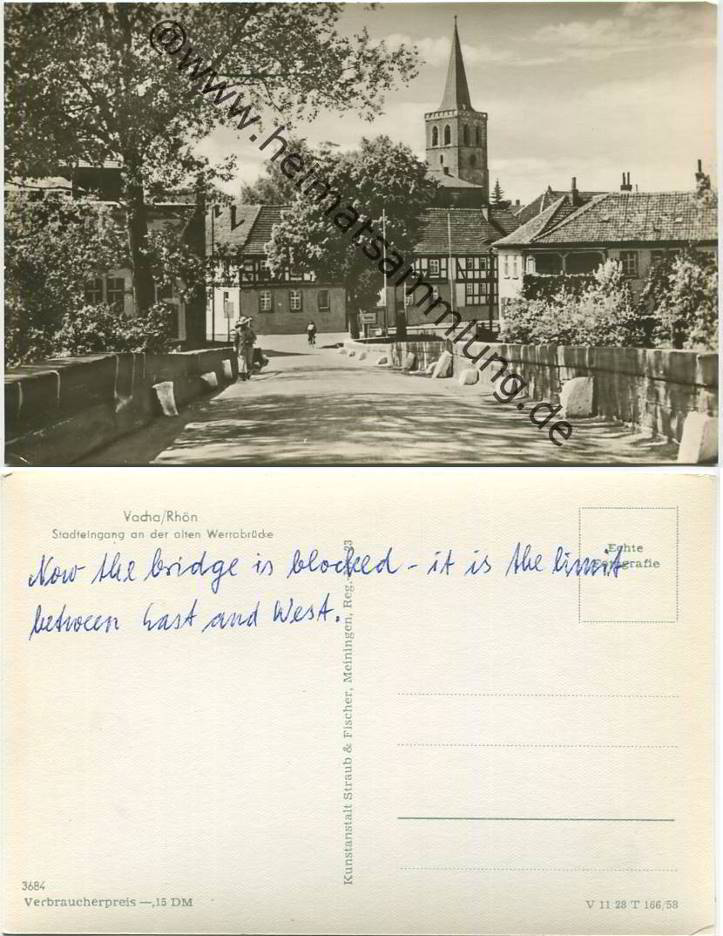 ©www.heimatsammlung.de
Vacha/Rhön
Stadteingang an der alten Werrabrücke
Now the bridge is blocked - it is the limit
between East and West.
Echte
Fotografie
Kunstanstalt Straub & Fischer, Meiningen, Reg. 23
3684
Verbraucherpreis —,15 DM
V 11 28 T 166/58